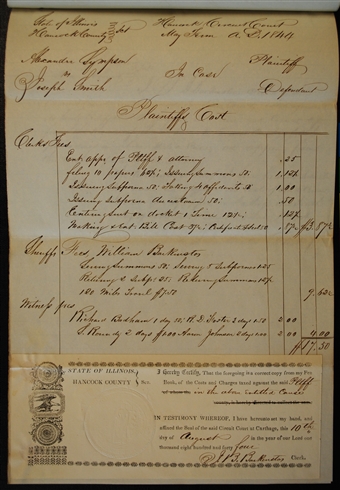 State of Illinois } Hancock Circuit Court
Hancock County } Sct May Term A.D. 1844
Alexander Sympson Plaintiff
vs In Case
Joseph Smith Defendant
Plaintiffs Cost
Clerks Fees
Ent appr of Pltff & attorney .25
filing 10 papers 62½; Issuing Summons 50; 1.12½
Issuing Subpoena 50; 1.00
Issuing Subpoena 50; .50
Entering Suit on docket 1 time 12½; .12½
Making & ent. Bill Cost 37½; $3.87½
Sheriffs Fees William Backenstos
Serving Summons 50; Serving 5 Subpoenas 125
Returning
120 Miles Travel $7.50 9.62½
Witness fees
Richard Badham 1 day 2 days 2.00
S Roundy 2 days Aaron Johnson 2 days 2.00 4.00
$17.50
STATE OF ILLINOIS,
HANCOCK COUNTY } Sct.
I hereby Certify, That the foregoing is a correct copy from my Fee
Book, of the Costs and Charges taxed against the said Pltff
in the above entitled Cause
IN TESTIMONY WHEREOF, I have hereunto set my hand, and
affixed the Seal of the said Circuit Court at Carthage, this 10th
day of August in the year of our Lord one
thousand eight hundred and forty four
J. B. Backenstos Clerk.